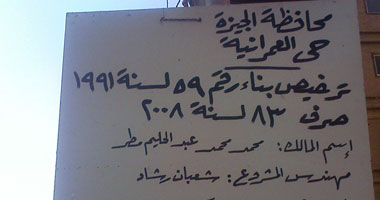 محافظة الجيزة
حى العمرانية
ترخيص بناء رقم ٥٩ لسنة ١٩٩١
صرف ٨٣ لسنة ٢٠٠٨
إسم المالك: محمد محمد عبد الحليم مطر
مهندس المشروع: شعبان رشاد